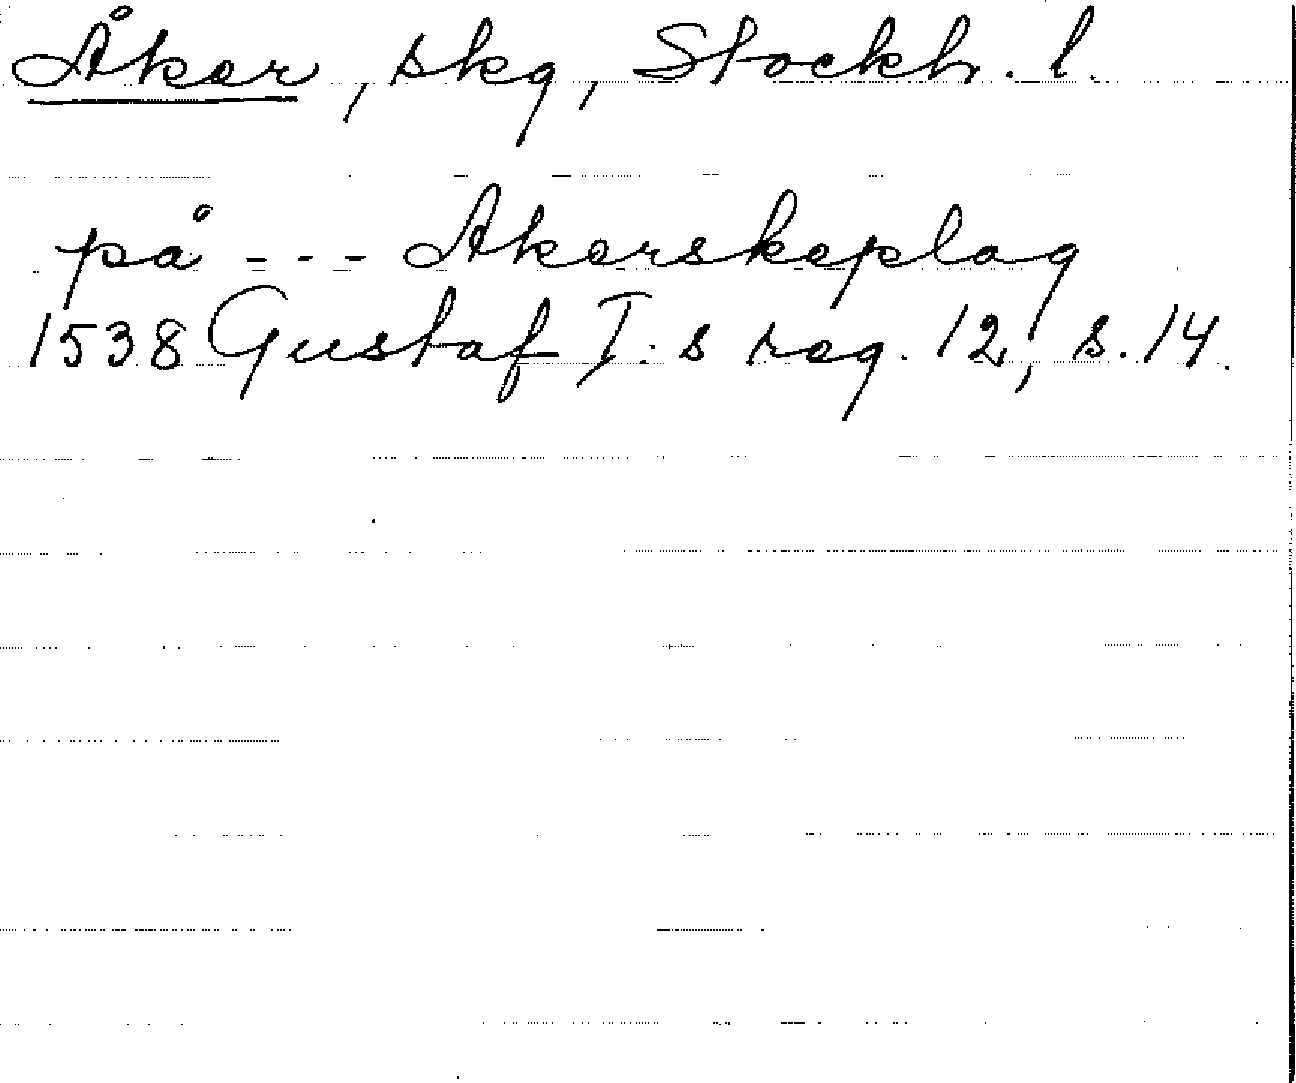 Åker, skg, Stockh. l.
på --- Akerskeplag
1538 Gustaf I:s reg. 12, s. 14.